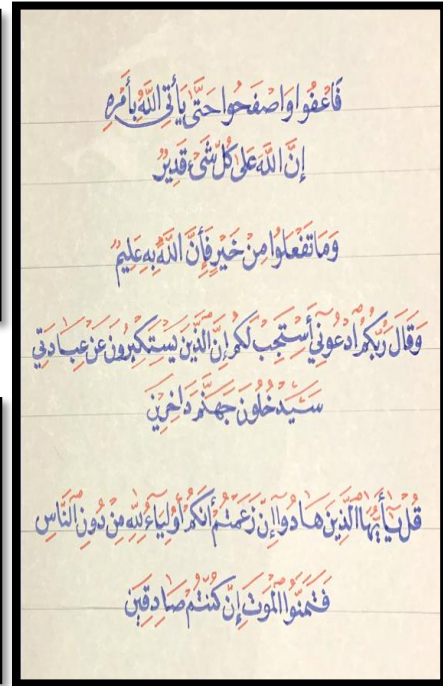 فَاعْفُوا وَاصْفَحُوا حَتَّىٰ يَأْتِيَ اللَّهُ بِأَمْرِهِ
إِنَّ اللَّهَ عَلَىٰ كُلِّ شَيْءٍ قَدِيرٌ
وَمَا تَفْعَلُوا مِنْ خَيْرٍ فَأِنَّ اللَّهَ بِهِ عَلِيمٌ
وَقَالَ رَبُّكُمُ ادْعُونِي أَسْتَجِبْ لَكُمْ إِنَّ الَّذِينَ يَسْتَكْبِرُونَ عَنْ عِبَادَتِي
سَيَدْخُلُونَ جَهَنَّمَ دَاخِرِينَ
قُلْ يَأَيُّهَا الَّذِينَ هَادُوا إِنْ زَعَمْتُمْ أَنَّكُمْ أَوْلِيَاءُ لِلَّهِ مِنْ دُونِ النَّاسِ
فَتَمَنَّوُا الْمَوْتَ إِنْ كُنْتُمْ صَادِقِينَ